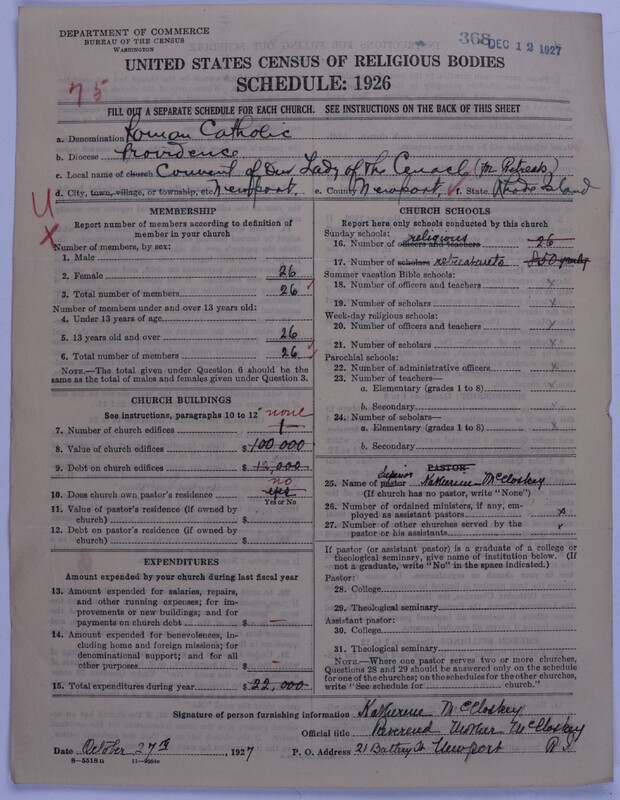 DEPARTMENT OF COMMERCE
BUREAU OF THE CENSUS
WASHINGTON
368 DEC 12 1927
UNITED STATES CENSUS OF RELIGIOUS BODIES
SCHEDULE: 1926
75
FILL OUT A SEPARATE SCHEDULE FOR EACH CHURCH. SEE INSTRUCTIONS ON THE BACK OF THIS SHEET
a. Denomination Roman Catholic
b. Diocese Providence
c. Local name of church Convent of Our Lady of the Cenacle (for Retreats)
d. City, town, village, or township, etc. Newport, e. County Newport, f. State. Rhode Island
U
X
MEMBERSHIP
Report number of members according to definition of member in your church
Number of members, by sex:
1. Male
2. Female 26
3. Total number of members 26
Number of members under and over 13 years old:
4. Under 13 years of age
5. 13 years old and over 26
6. Total number of members 26
NOTE.—The total given under Question 6 should be the
same as the total of males and females given under Question 3.
CHURCH BUILDINGS
See instructions, paragraphs 10 to 12 none
7. Number of church edifices 1
8. Value of church edifices $ 100 000
9. Debt on church edifices $ 12,000
no
10. Does church own pastor's residence yes
Yes or No
11. Value of pastor's residence (if owned by
church) $
12. Debt on pastor's residence (if owned by
church) $
EXPENDITURES
Amount expended by your church during last fiscal year
13. Amount expended for salaries, repairs,
and other running expenses; for im-
provements or new buildings; and for
payments on church debt $ —
14. Amount expended for benevolences, in-
cluding home and foreign missions; for
denominational support; and for all
other purposes $ —
15. Total expenditures during year $ 22,000
CHURCH SCHOOLS
Report here only schools conducted by this church
Sunday schools:
religious
16. Number of officers and teachers 26
17. Number of scholars retreatants 850 yearly
Summer vacation Bible schools:
18. Number of officers and teachers x
19. Number of scholars x
Week-day religious schools:
20. Number of officers and teachers x
21. Number of scholars x
Parochial schools:
22. Number of administrative officers x
23. Number of teachers—
a. Elementary (grades 1 to 8) x
b. Secondary
24. Number of scholars—
a. Elementary (grades 1 to 8) x
b. Secondary
PASTOR
Superior
25. Name of pastor Katherine McCloskey
(If church has no pastor, write "None")
26. Number of ordained ministers, if any, em-
ployed as assistant pastors x
27. Number of other churches served by the
pastor or his assistants x
If pastor (or assistant pastor) is a graduate of a college or
theological seminary, give name of institution below. (If
not a graduate, write "No" in the space indicated.)
Pastor:
28. College
29. Theological seminary
Assistant pastor:
30. College
31. Theological seminary
NOTE.—Where one pastor serves two or more churches,
Questions 28 and 29 should be answered only on the schedule
for one of the churches; on the schedules for the other churches,
write "See schedule for church."
Signature of person furnishing information Katherine McCloskey
Official title Reverend Mother McCloskey
Date October 27th, 1927 P. O. Address 21 Battery St Newport R I
8—5518 a